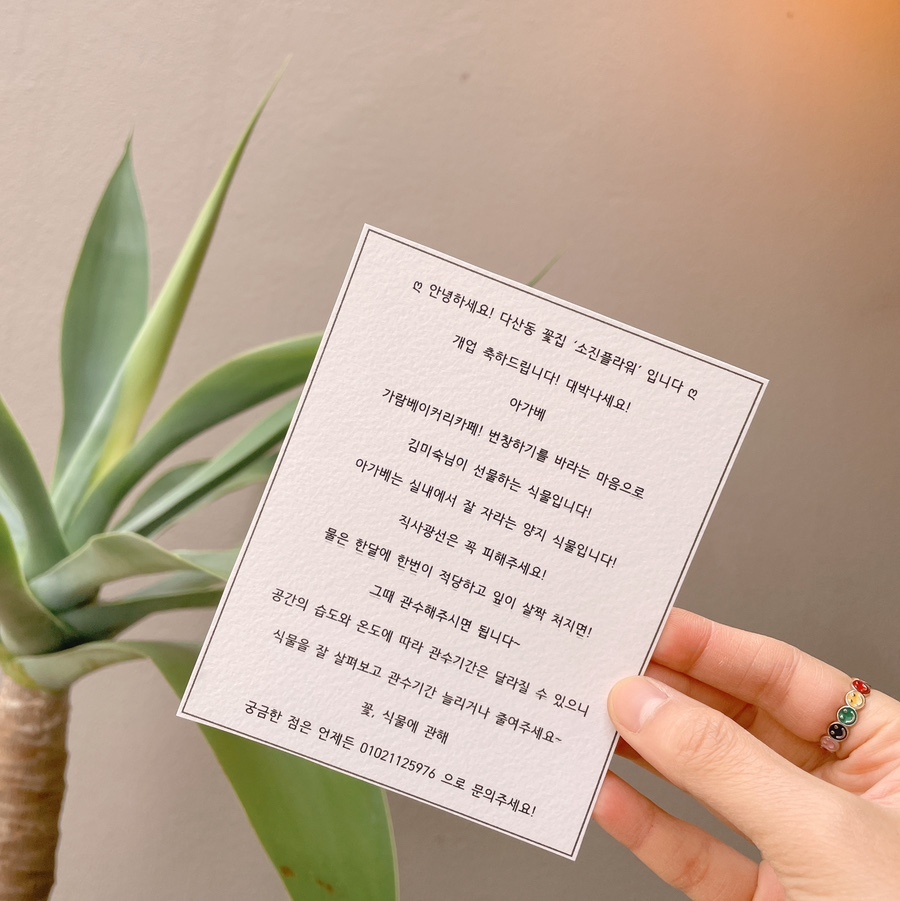 ღ 안녕하세요! 다산동 꽃집 '소진플라워' 입니다 ღ
개업 축하드립니다! 대박나세요!
아가베
가람베이커리카페! 번창하기를 바라는 마음으로
김미숙님이 선물하는 식물입니다!
아가베는 실내에서 잘 자라는 양지 식물입니다!
직사광선은 꼭 피해주세요!
물은 한달에 한번이 적당하고 잎이 살짝 처지면!
그때 관수해주시면 됩니다~
공간의 습도와 온도에 따라 관수기간은 달라질 수 있으니
식물을 잘 살펴보고 관수기간 늘리거나 줄여주세요~
꽃, 식물에 관해
궁금한 점은 언제든 01021125976 으로 문의주세요!